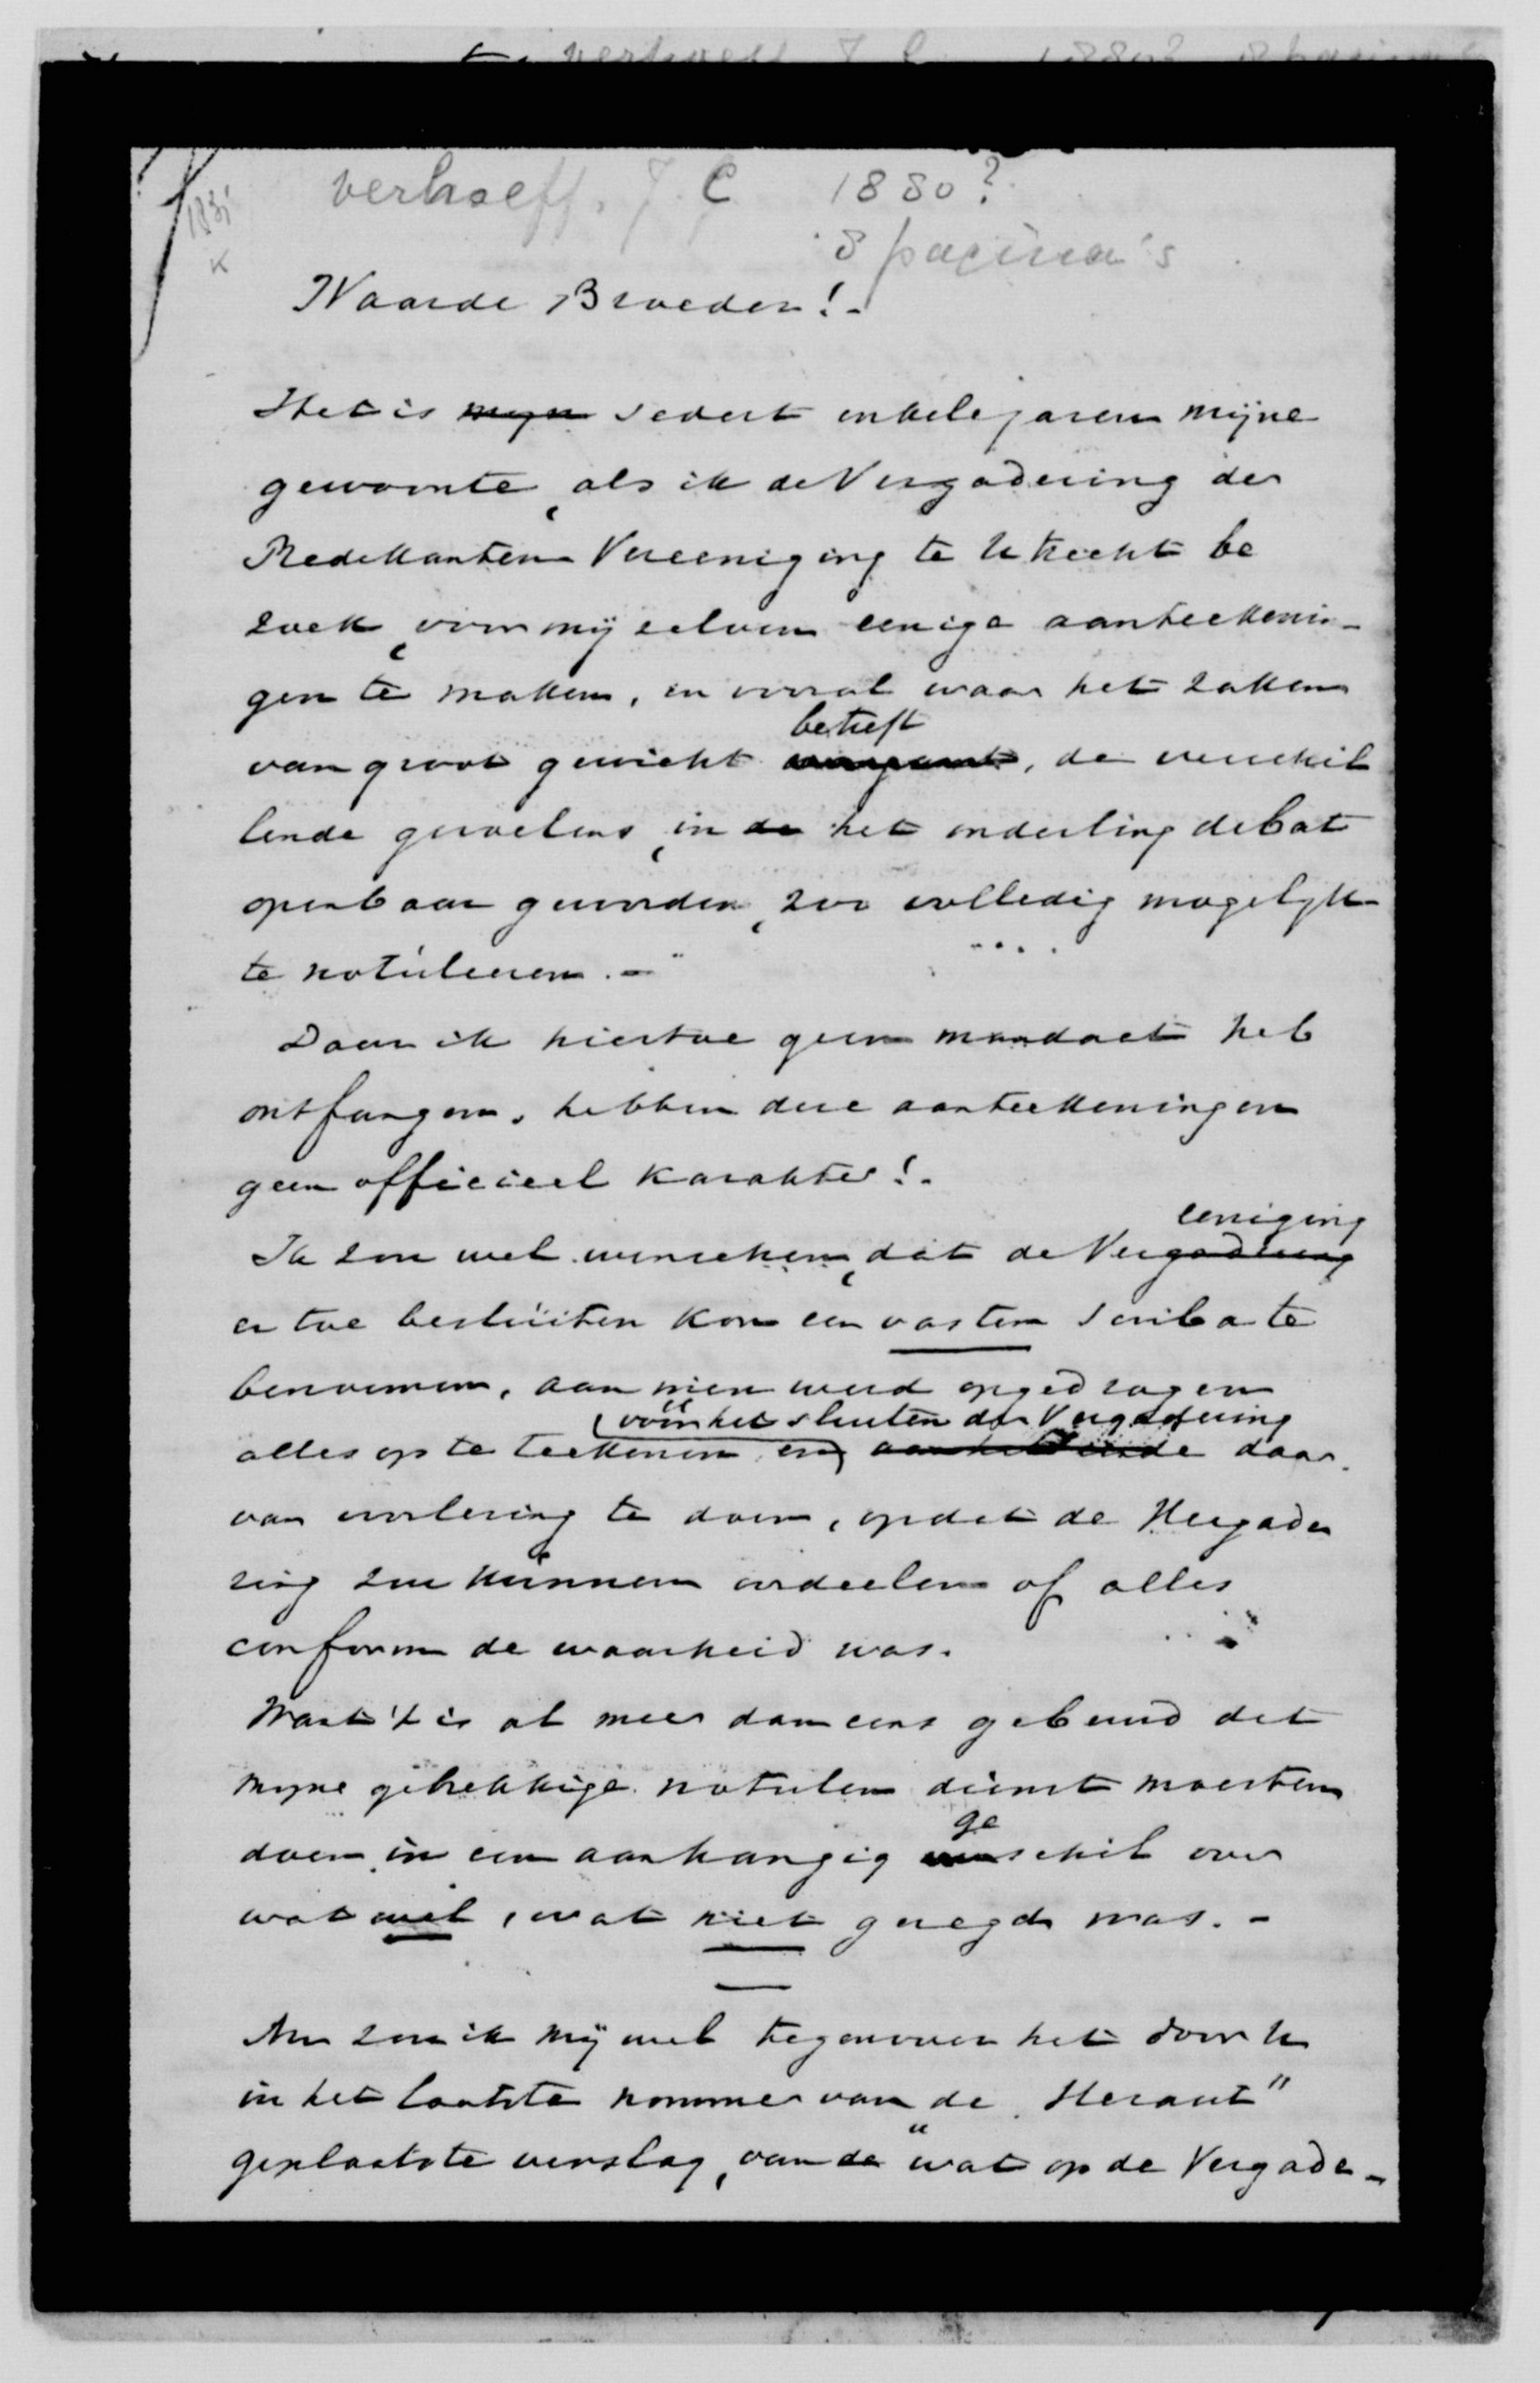 verhoeff. J. C 1880?
8 pagina's
Waarde Broeder!.
Het is mijn sedert enkele jaren mijne
gewoonte, als ik de Vergadering der
Predikanten Vereeniging te Utrecht be
zoek, voor mij zelven eenige aanteekenin-
gen te maken, en vooral waar het zaken
betreft
van groot gewicht , de verschil
lende gevoelens, in de het onderling debat
openbaar geworden, zoo volledig mogelijk
te notuleeren. -
Daar ik hiertoe geen mandaat heb
ontfangen, hebben deze aanteekeningen
geen officieel karakter!.
eeniging
Ik zou wel wenschen, dat de Vergadering
er toe besluiten kon een vasten scriba te
benoemen, aan wien werd opgedragen
voor het sluiten der Vergadering
alles op te teekenen en aan het einde daar
van voorlezing te doen, opdat de Vergade
ring zou kunnen oordeelen of alles
conform de waarheid was.
Want 't is al meer dan eens gebeurd dat
mijne gebrekkige notulen dienst moesten
ge
doen in een aanhangig verschil over
wat wel, wat niet gezegd was. -
Nu zou ik mij wel tegenover het door U
in het laatste nommer van "de Heraut"
geplaatste verslag, van de wat op de Vergade-